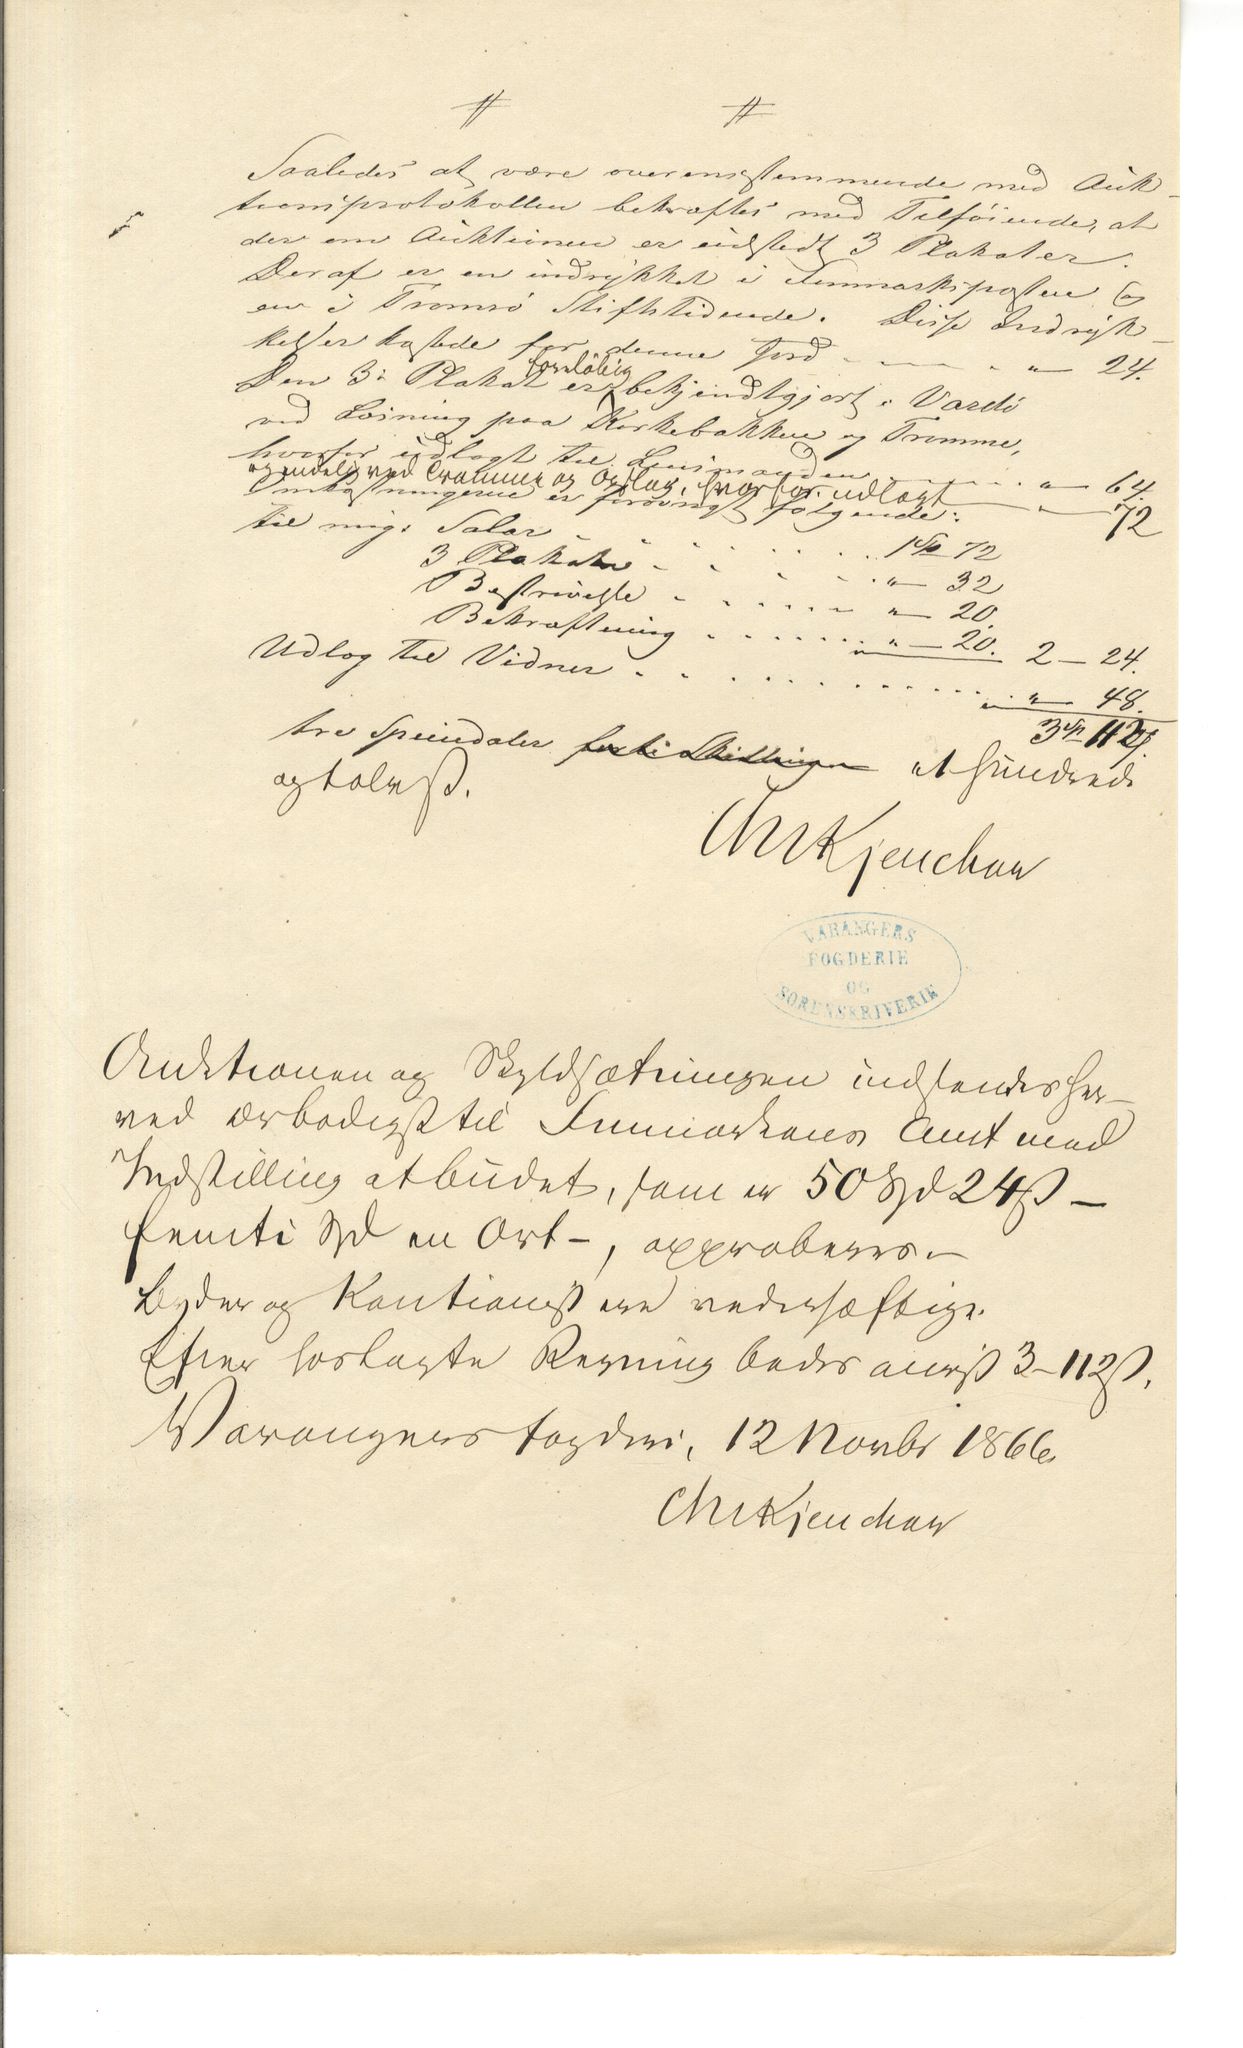 Saaledes at være overensstemmende med Auk-
tionsprotokollen bekræftes med Tilføiende, at
der om Auktionen er udstedt 3 Plakater.
Deraf er en indrykket i Finmarksposten og
en i Tromsø Stiftstidende. Disse Indryk-
kelser kostede for denne Jord " 24.
foreløbig
Den 3die Plakat er bekjendtgjort i Vardø
ved Læsning paa Kirkebakken og Tromme,
hvorfor udlagt til Lensmanden " 64.
og endelig ved Tromme og Opslag, hvorfor udlagt " 72
Omkostningerne er forøvrigt følgende:
til mig: Salær 1 Sp 72
3 Plakater " 32
Beskrivelse " 20.
Bekræftning " 20. 2 - 24.
Udlæg til Vidner " 48.
3 Sp 112 ß.
tre Speciedaler et hundrede
og tolv ß.
Chr Kjerschow
VARANGERS
FOGDERIE
OG
SORENSKRIVERIE
Auktionen og Skyldsætningen indsendes her-
ved ærbødigst til Finmarkens Amt med
Indstilling at budet, som er 50 Spd 24 ß -
femti Spd en Ort -, approberes. -
Byder og Kautionist ere vederhæftige.
Efter hoslagte Regning bedes anvist 3-112 ß.
Varangers fogderi, 12 Novbr 1866.
Chr Kjerschow